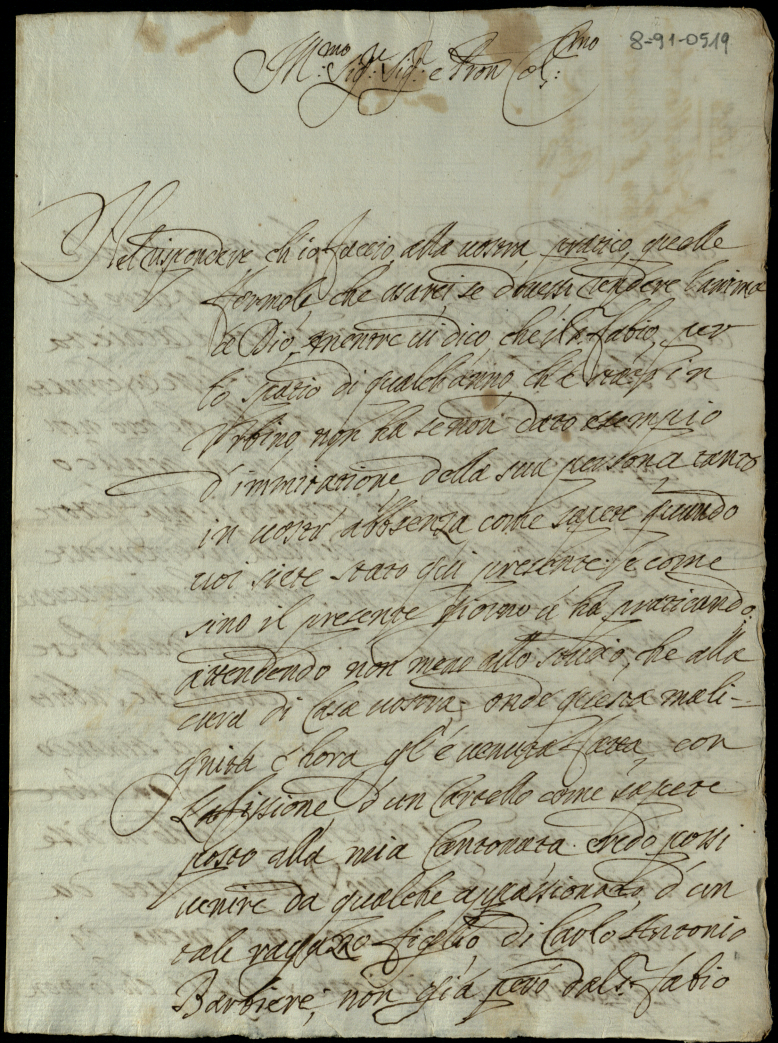 8-91-0519
M:mo Sig:re Sig:r e Pron Col:mo
Nel rispondere ch'io faccio alla vostra, pratico quelle
formole che usarei se dovessi rendere l'anima
à Dio, mentre vi dico che il Sr. Fabio, per
lo spatio di qualch'anno ch'è stato in
Urbino, non ha se non dato essempio
d'immitatione della sua persona tanto
in vostr' abbsenza come sapete quando
voi siete stato qui presente, e come
sino il presente giorno và praticando,
attendendo non meno allo studio, che alla
cura di Casa vostra; onde questa mali-
gnità c'hora gl'è venuta fatta, con
l'afissione d'un Cartello come sapete
posto alla mia Cantonata credo possi
venire da qualche appassionato, d'un
tale ragazzo figlio di Carlo Antonio
Barbiere; non già però dal Sr. Fabio